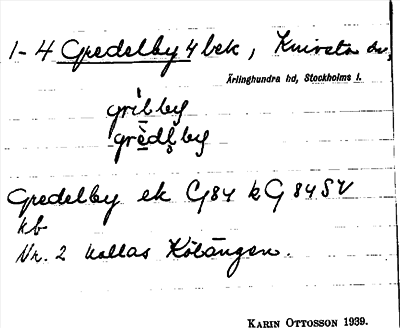 1-4 Gredelby 4 bek, Knivsta sn,
Ärlinghundra hd, Stockholms l.
gribby
grèdl̥by
Gredelby ek G84 kG84SV
kb
Nr. 2 kallas Kölängen.
KARIN OTTOSSON 1939.